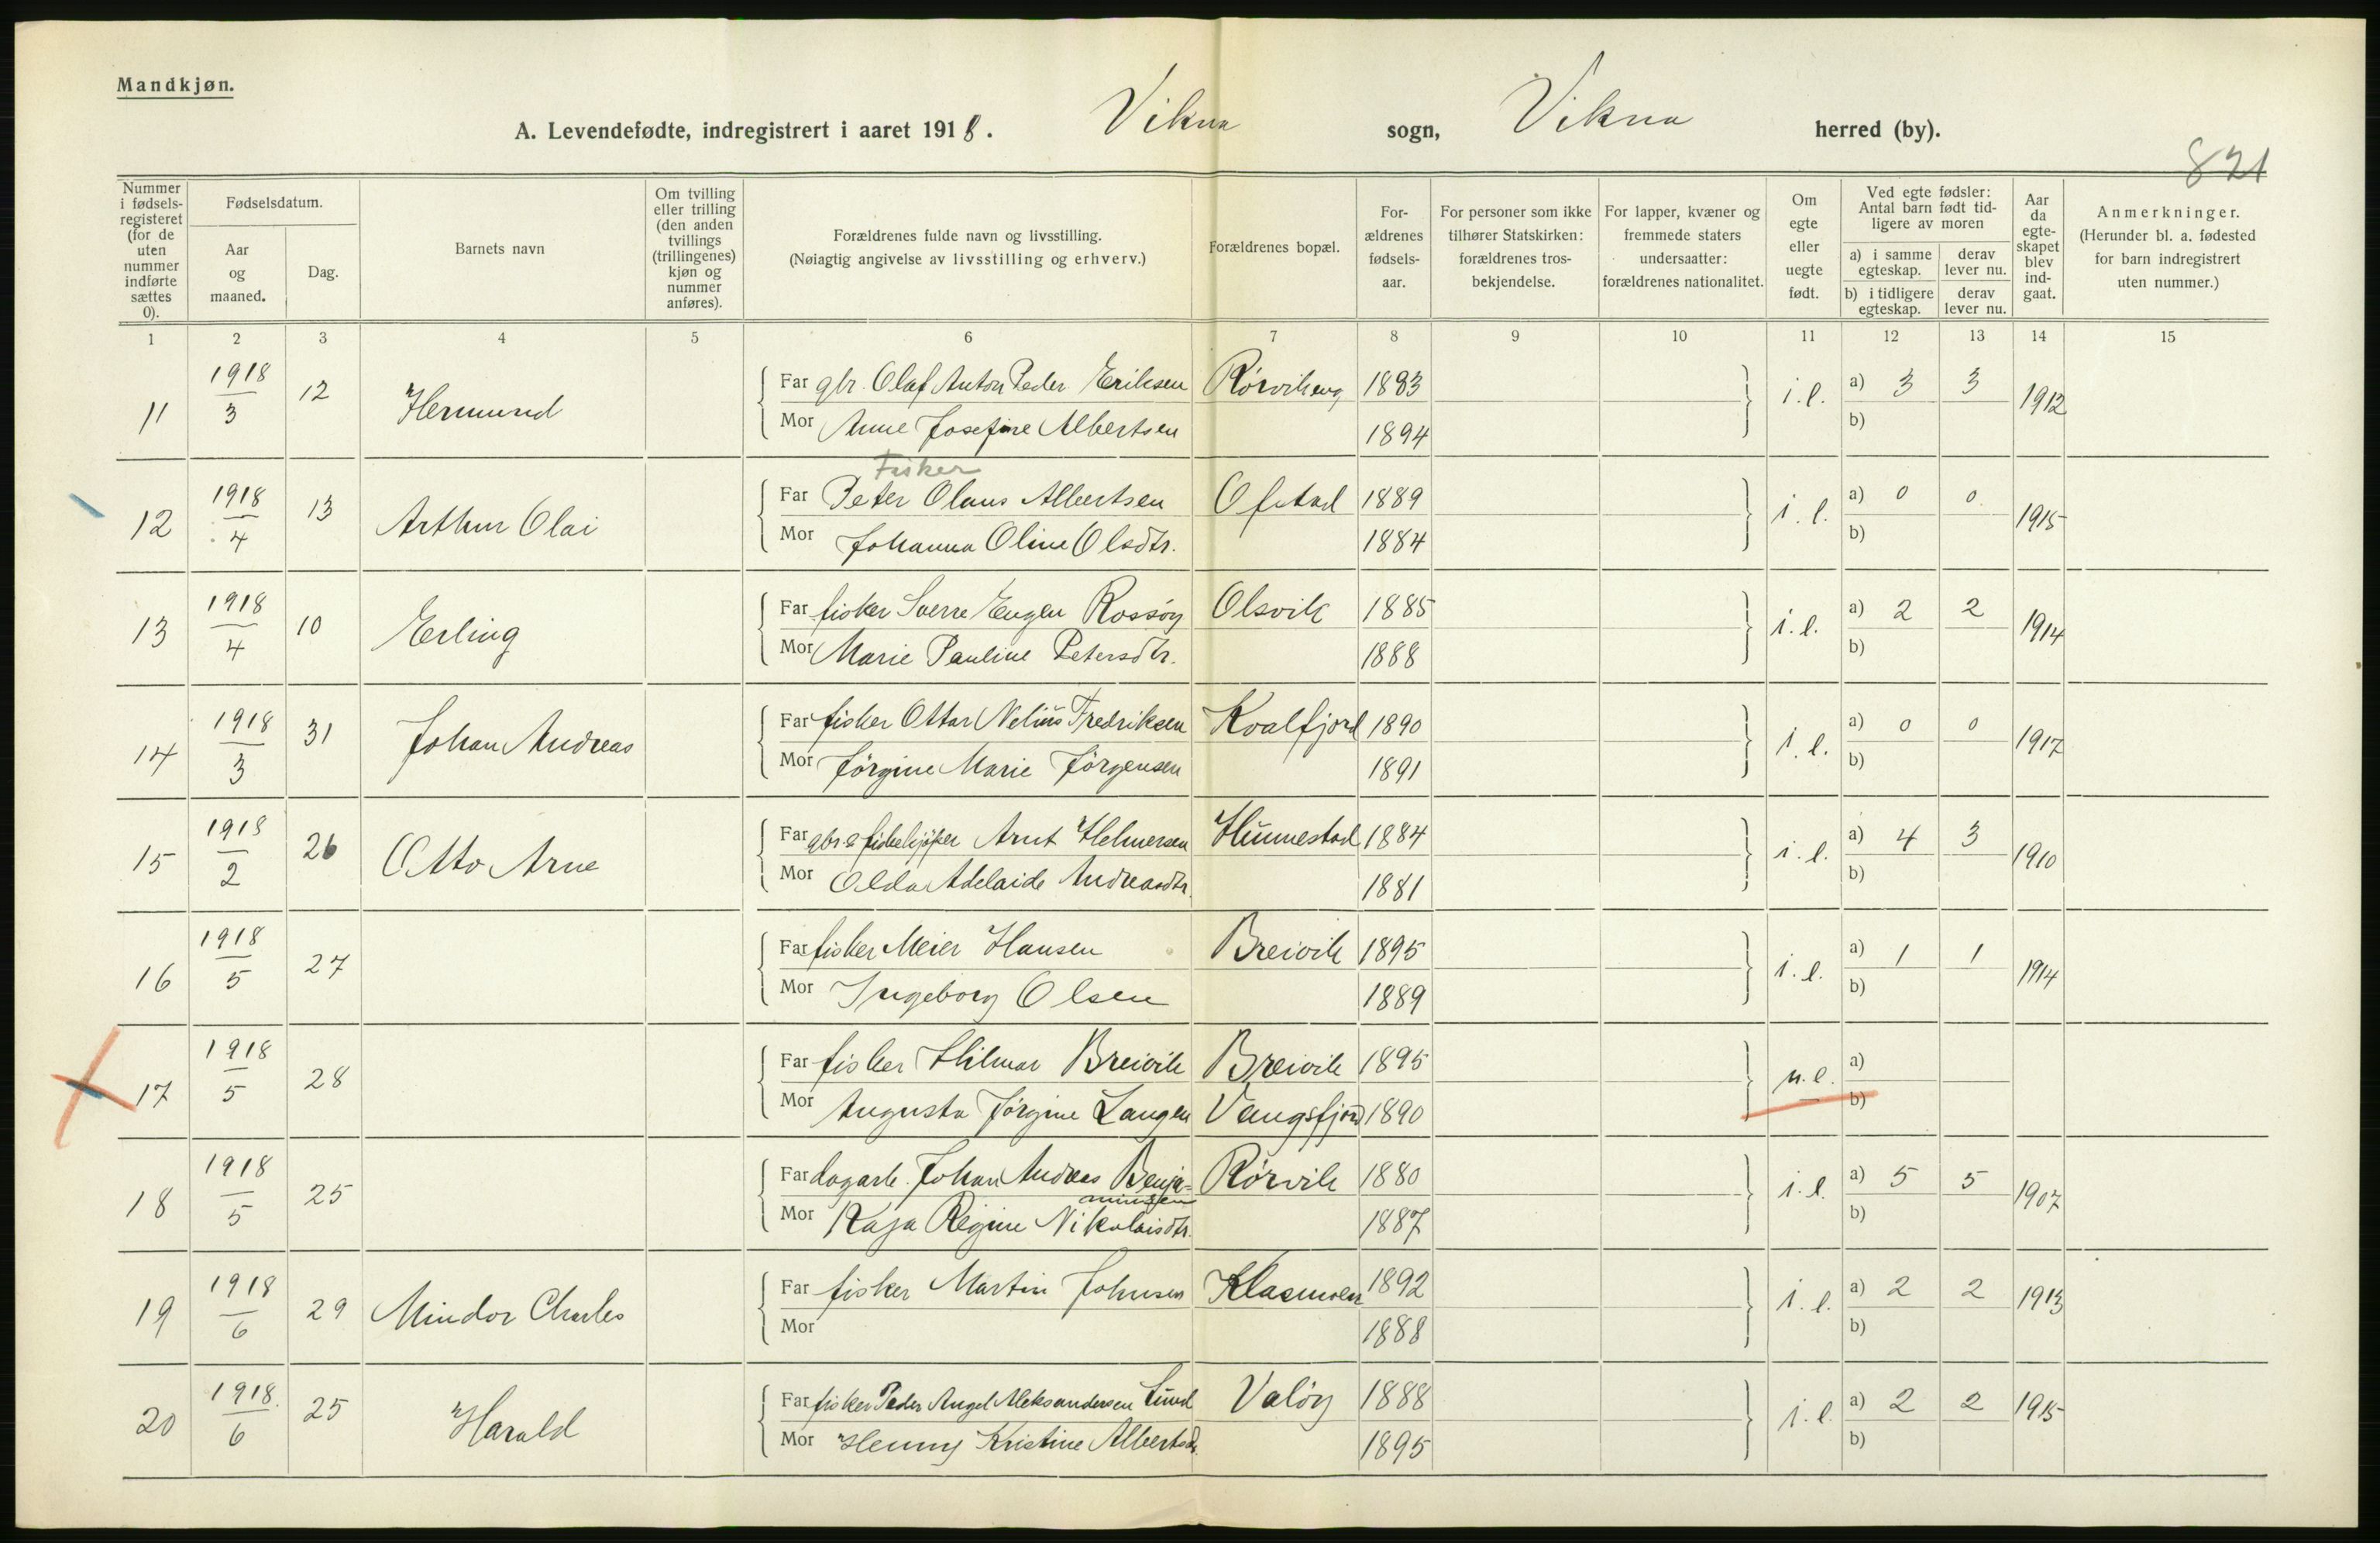 Mandkjøn.
A. Levendefødte, indregistrert i aaret 1918. Vikna sogn, Vikna herred (by).
821
Nummer i fødsels-registeret (for de uten nummer indførte sættes 0).
Fødselsdatum.
Aar og maaned.
Dag.
Barnets navn
Om tvilling eller trilling (den anden tvillings (trillingenes) kjøn og nummer anføres).
Forældrenes fulde navn og livsstilling.
(Nøiagtig angivelse av livsstilling og erhverv.)
Forældrenes bopæl.
For-ældrenes fødsels-aar.
For personer som ikke tilhører Statskirken: forældrenes tros-bekjendelse.
For lapper, kvæner og fremmede staters undersaatter: forældrenes nationalitet.
Om egte eller uegte født.
Ved egte fødsler: Antal barn født tid-ligere av moren
a) i samme egteskap.
derav lever nu.
b) i tidligere egteskap.
derav lever nu.
Aar da egte-skapet blev ind-gaat.
Anmerkninger.
(Herunder bl. a. fødested for barn indregistrert uten nummer.)
1 2 3 4 5 6 7 8 9 10 11 12 13 14 15
11 1918 3 12 Hermund Far gbr. Olaf Anton Peder Eriksen 1883 i. e. a) 3 3 1912
Mor Anne Josefine Albertsen 1894 b)
Fisker
12 1918 4 13 Arthur Olai Far Peter Olaus Albertsen Ofstad 1889 i. e. a) 0 0 1915
Mor Johanna Oline Olsdtr. 1884 b)
13 1918 4 10 Erling Far fisker Sverre Eugen Rossøy Olsvik 1885 i. e. a) 2 2 1914
Mor Marie Pauline Petersdtr. 1888 b)
14 1918 3 31 Johan Andreas Far fisker Ottar Nelius Fredriksen Kvalfjord 1890 i. e. a) 0 0 1917
Mor Jørgine Marie Jørgensen 1891 b)
15 1918 2 26 Otto Arne Far gbr. & fiskekjøper Arnt Helmersen Hunnestad 1884 i. e. a) 4 3 1910
Mor Olda Adelaide Andreasdtr. 1881 b)
16 1918 5 27 Far fisker Meier Hansen Breivik 1895 i. e. a) 1 1 1914
Mor Ingeborg Olsen 1889 b)
17 1918 5 28 Far fisker Hilmar Breivik Breivik 1895 u. e. a)
Mor Augusta Jørgine Langen Vaagsfjord 1890 b)
18 1918 5 25 Far dagarb. Johan Andreas Benja-minsen Rørvik 1880 i. e. a) 5 5 1907
Mor Kaja Regine Nikolaisdtr. 1887 b)
19 1918 6 29 Mindor Charles Far fisker Martin Johnsen 1892 i. e. a) 2 2 1913
Mor 1888 b)
20 1918 6 25 Harald Far fisker Peder Angel Aleksandersen Lund Valøy 1888 i. e. a) 2 2 1915
Mor Henny Kristine Albertsdr. 1895 b)